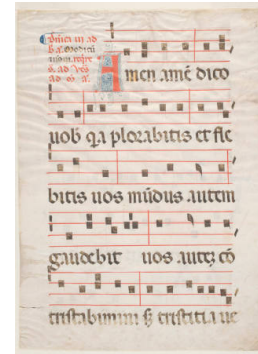 Amen amē dico
uob̄ q̄a plorabitis et fle
bitis uos mūdus autem
gaudebit uos autez cō
tristabimini s̄ tristitia ue